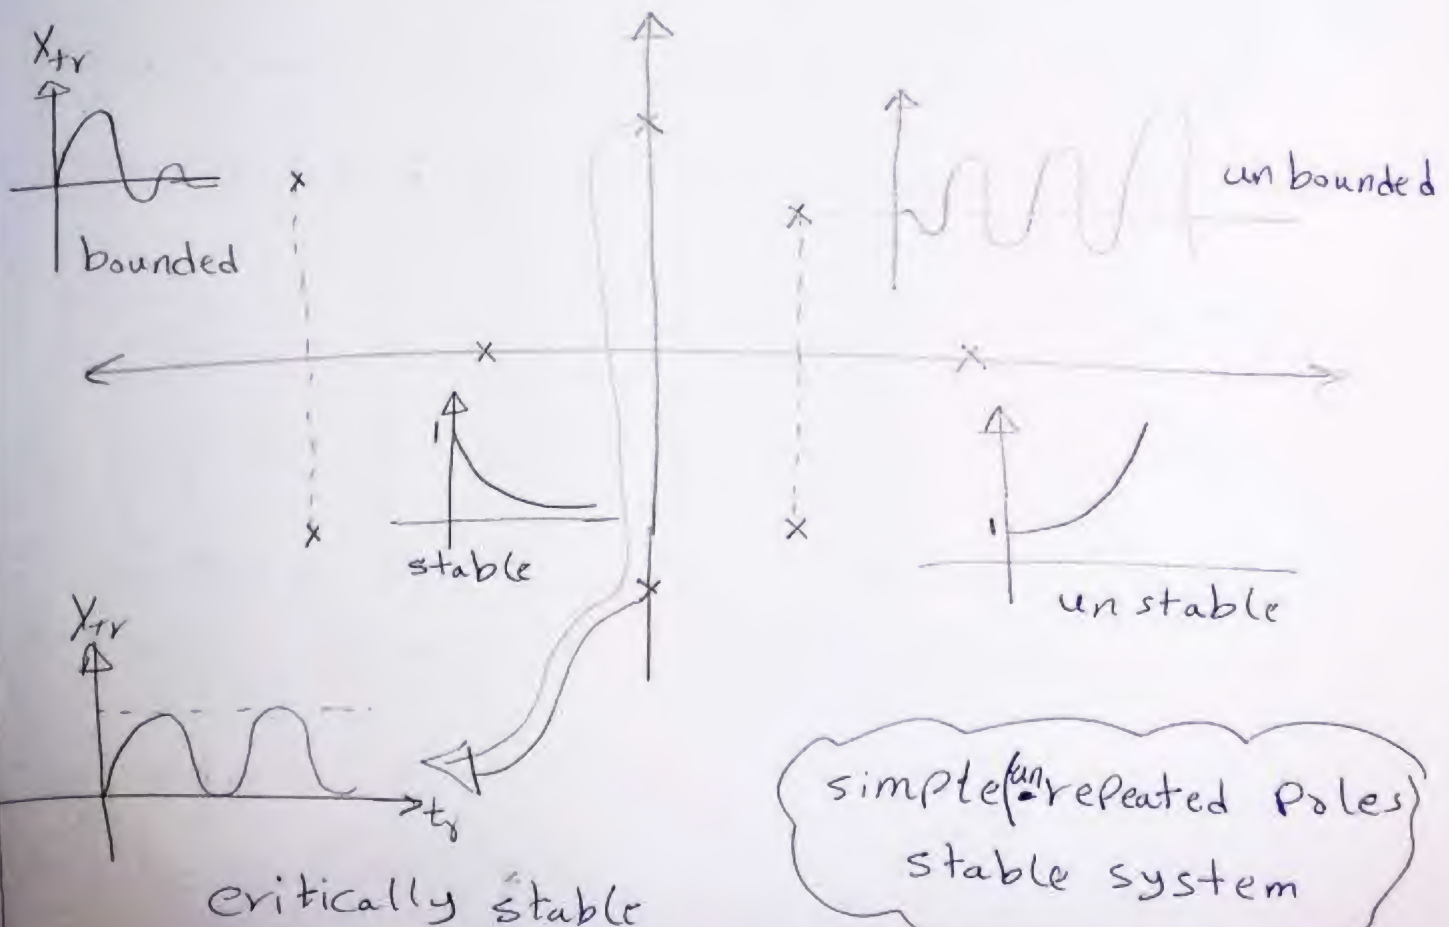 X_tr
bounded
unbounded
1
stable
1
unstable
X_tr
t_r
critically stable
simple (un-repeated poles)
stable system